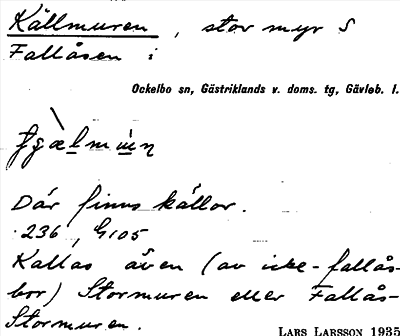 Källmuren, stor myr S
Fallåsen i
Ockelbo sn, Gästriklands v. doms. tg, Gävleb. l.
Där finns källor.
236, G105
Kallas även (av icke-fallås-
bor) Stormuren eller Fallås-
Stormuren.
LARS LARSSON 1935